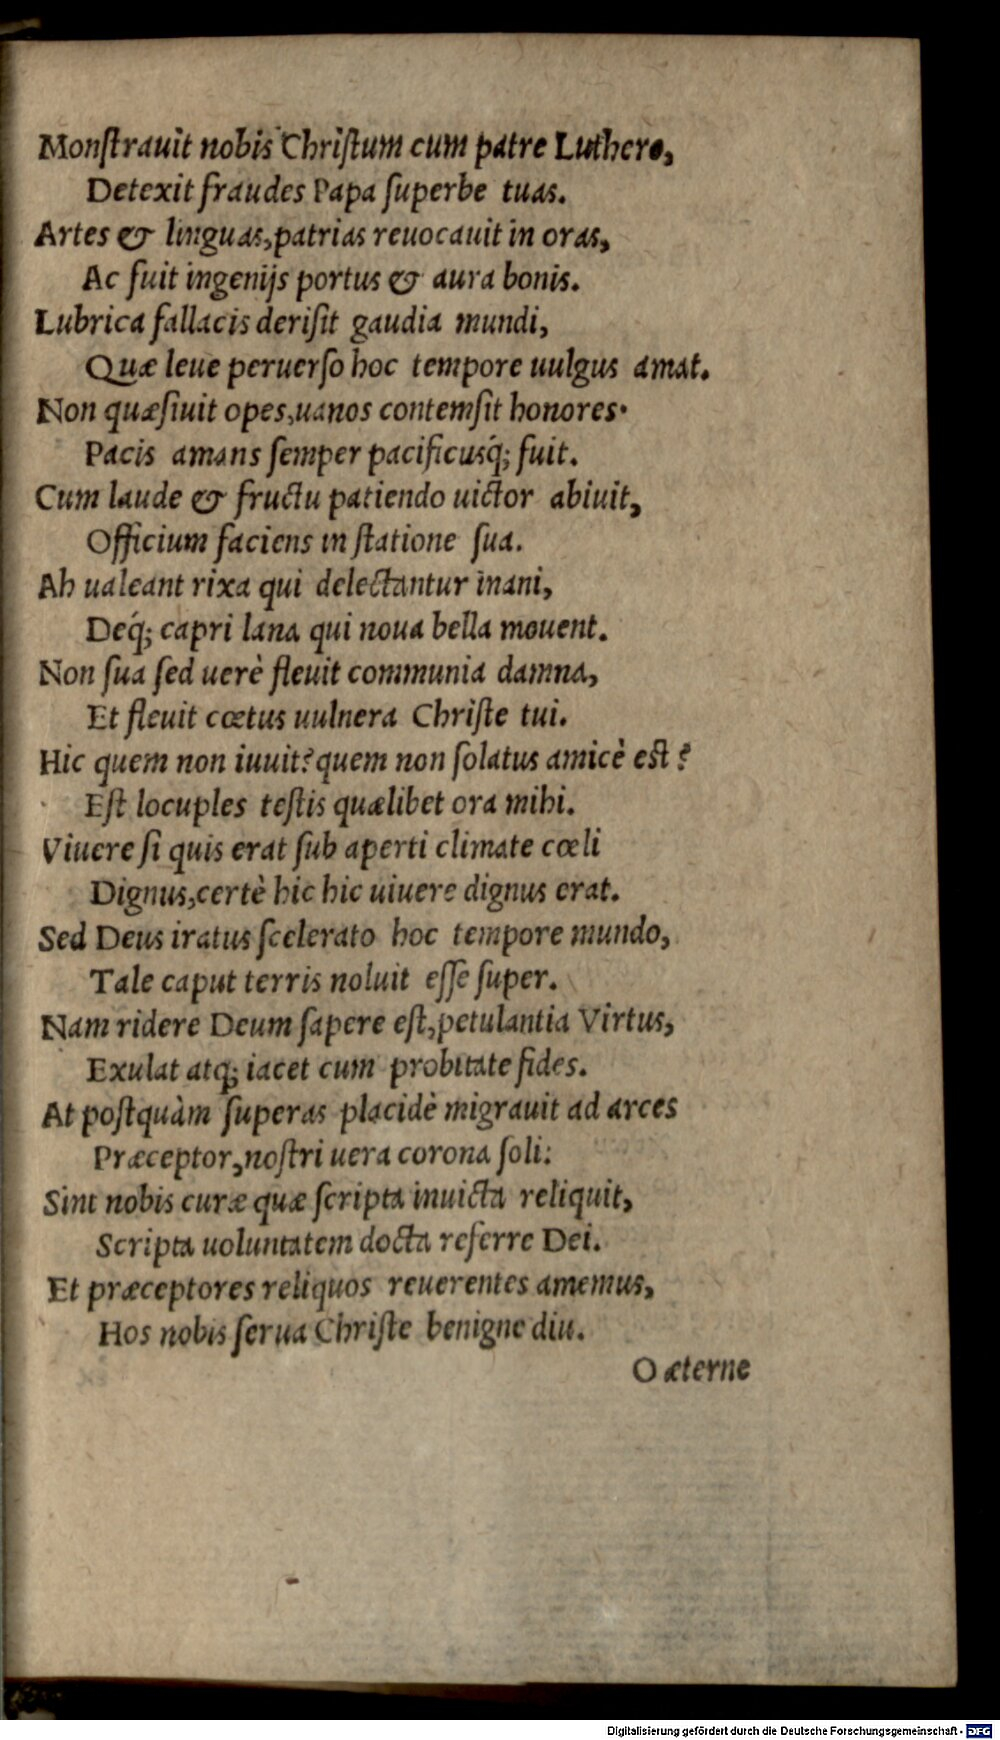 Monſtrauit nobis Chriſtum cum patre Luthero,
Detexit fraudes Papa ſuperbe tuas.
Artes & linguas, patrias reuocauit in oras,
Ac fuit ingenijs portus & aura bonis.
Lubrica fallacis deriſit gaudia mundi,
Quæ leue peruerſo hoc tempore uulgus amat.
Non quæſiuit opes, uanos contemſit honores·
Pacis amans ſemper pacificusq́; fuit.
Cum laude & fructu patiendo uictor abiuit,
Officium faciens in ſtatione ſua.
Ah ualeant rixa qui delectantur inani,
Deq́; capri lana qui noua bella mouent.
Non ſua ſed uerè fleuit communia damna,
Et fleuit cœtus uulnera Chriſte tui.
Hic quem non iuuit? quem non ſolatus amicè eſt?
Eſt locuples teſtis quælibet ora mihi.
Viuere ſi quis erat ſub aperti climate cœli
Dignus, certè hic hic uiuere dignus erat.
Sed Deus iratus ſcelerato hoc tempore mundo,
Tale caput terris noluit eſſe ſuper.
Nam ridere Deum ſapere eſt, petulantia Virtus,
Exulat atq; iacet cum probitate fides.
At poſtquàm ſuperas placidè migrauit ad arces
Præceptor, noſtri uera corona ſoli:
Sint nobis curæ quæ ſcripta inuicta reliquit,
Scripta uoluntatem docta referre Dei.
Et præceptores reliquos reuerentes amemus,
Hos nobis ſerua Chriſte benigne diu.
O æterne
Digitalisierung gefördert durch die Deutsche Forschungsgemeinschaft - DFG